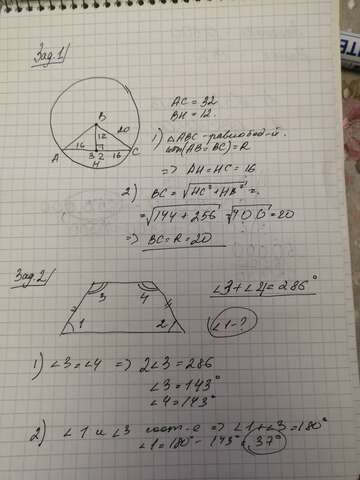 Зад.1
B
12
20
16
32
16
A
H
C
AC = 32
BH = 12.
1) △ABC - равнобед-й.
(AB = BC) = R
=> AH = HC = 16
2) BC = √HC² + HB² =
= √144 + 256 √400 = 20
=> BC = R = 20
Зад.2
3 4
1 2
∠3 + ∠4 = 286°
∠1 - ?
1) ∠3 = ∠4 => 2∠3 = 286
∠3 = 143°
∠4 = 143°
2) ∠1 и ∠3 => ∠1 + ∠3 = 180°
∠1 = 180° - 143° = 37°